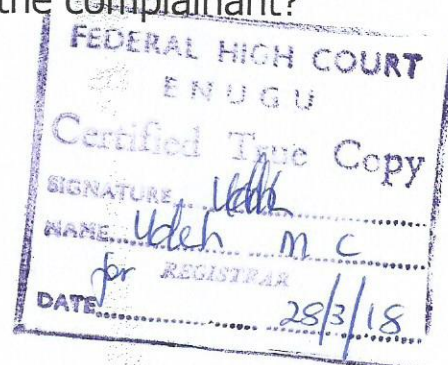 the complainant?
FEDERAL HIGH COURT
ENUGU
Certified True Copy
SIGNATURE
NAME Udeh M C
for REGISTRAR
DATE 28/3/18